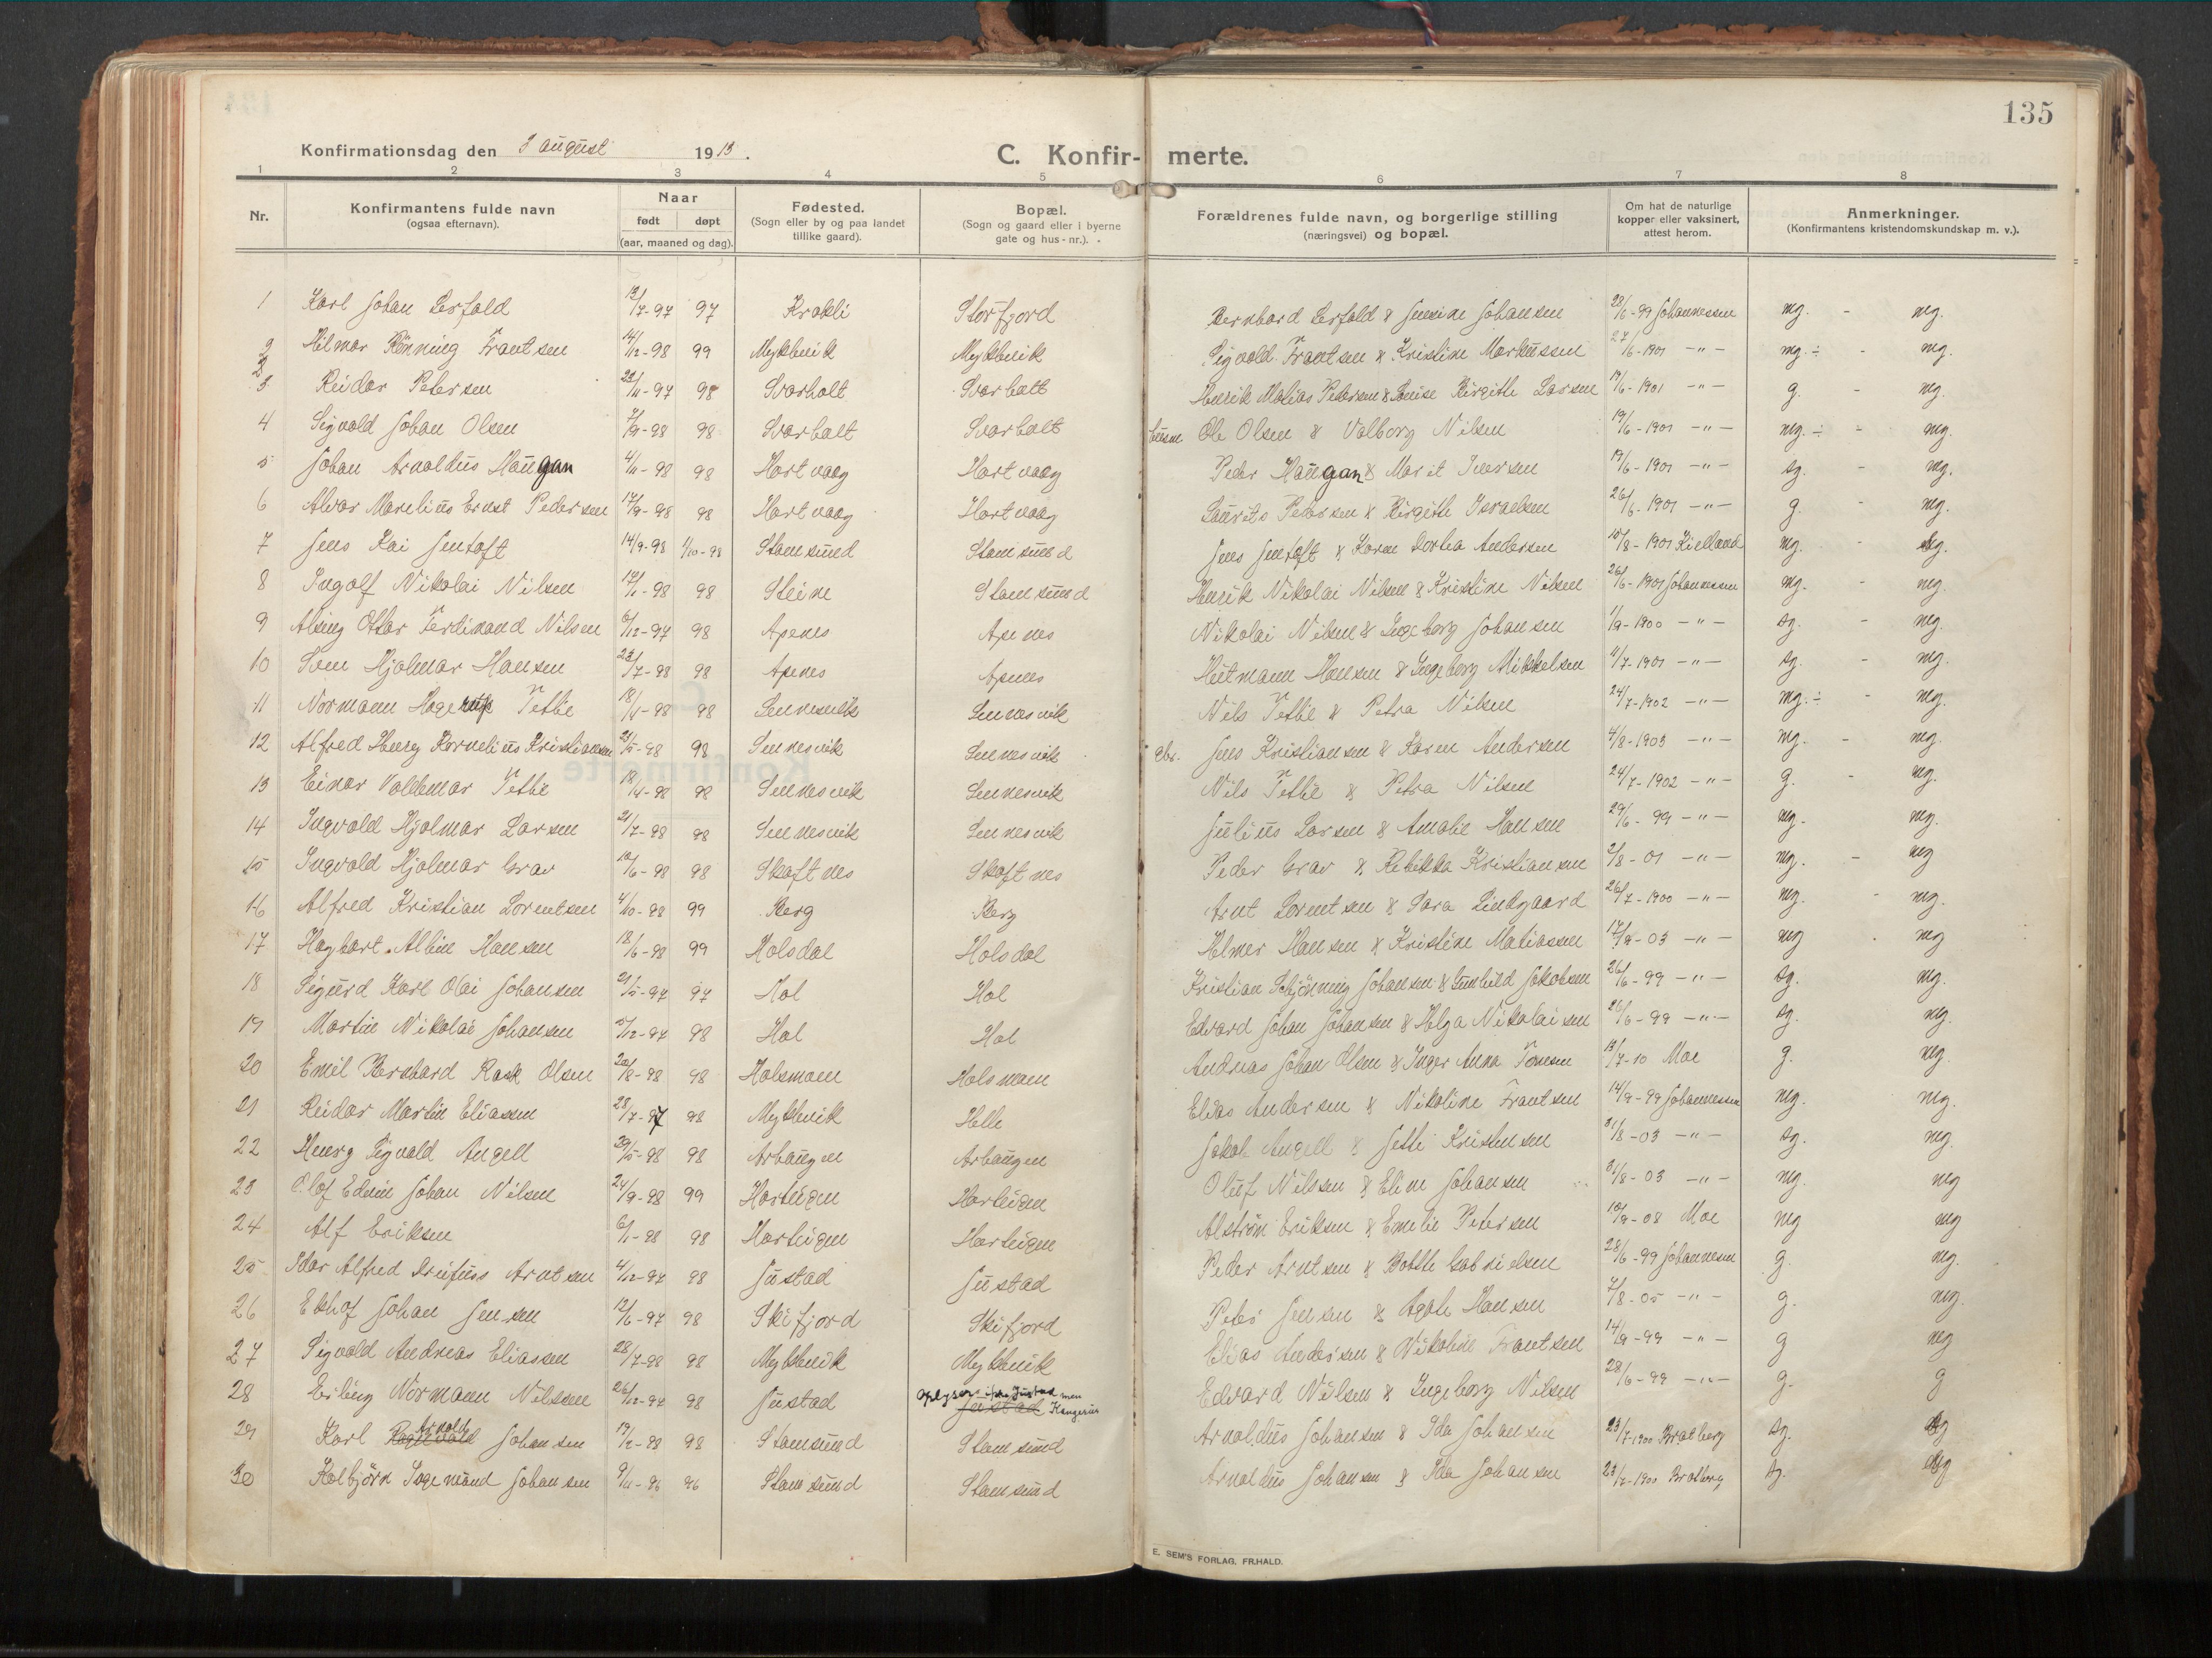 135
Konfirmationsdag den 3 august 1913.
C. Konfir- merte.
1 2 3 4 5 6 7 8
Nr.
Konfirmantens fulde navn
(ogsaa efternavn).
Naar
født døpt
(aar, maaned og dag).
Fødested.
(Sogn eller by og paa landet
tillike gaard).
Bopæl.
(Sogn og gaard eller i byerne
gate og hus-nr.).
Forældrenes fulde navn, og borgerlige stilling
(næringsvei) og bopæl.
Om hat de naturlige
kopper eller vaksinert,
attest herom.
Anmerkninger.
(Konfirmantens kristendomskundskap m. v.).
1 Karl Johan Lerfald 12/7-97 97 Krakli Storfjord Bernhard Lerfald & Jensine Johansen 28/6-99 Johannessen mg. - mg.
2 Hilmar Rönning Frantsen 14/12-98 99 Mykbuik Mykbuik Sigvald Frantsen & Kristine Markussen 27/6-1901 -"- mg.÷ - mg.
3 Reidar Petersen 23/11-97 98 Svarholt Svarholt Henrik Matias Petersen & Louise Birgitte Larsen 19/6-1901 -"- g. - mg.
4 Sigvald Johan Olsen 7/9-98 98 Svarholt Svarholt Ole Olsen & Valborg Nilsen 19/6-1901 -"- mg.÷ - mg.
5 Johan Arnoldus Haugan 4/11-98 98 Hartvaag Hartvaag Peder Haugan & Marit Iversen 19/6-1901 -"- sg. - mg.
6 Alvar Marelius Ernst Pedersen 17/9-98 98 Hartvaag Hartvaag Laurits Pedersen & Birgitte Israelsen 26/6-1901 -"- g. - mg.
7 Jens Kai Jentoft 14/9-98 1/10-98 Stamsund Stamsund Jens Jentoft & Karen Dortea Andersen 10/8-1901 Kielland mg. - mg.
8 Ingolf Nikolai Nilsen 17/1-98 98 Steine Stamsund Henrik Nikolai Nilsen & Kristine Nilsen 26/6-1901 Johannessen mg. - mg.
9 Alsing Ottar Ferdinand Nilsen 6/12-97 98 Apenes Apenes Nikolai Nilsen & Ingeborg Johansen 1/9-1900 -"- sg. - mg.
10 Sven Hjalmar Hansen 23/7-98 98 Apenes Apenes Hutmann Hansen & Ingeborg Mikkelsen 11/7-1901 -"- sg. - mg.
11 Normann Hagerup Tetlie 18/4-98 98 Sennesvik Sennesvik Nils Tetlie & Petra Nilsen 24/7-1902 -"- mg.÷ - mg.
12 Alfred Henry Kornelius Kristiansen 21/5-98 98 Sennesvik Sennesvik gbr. Jens Kristiansen & Karen Andersen 4/8-1903 -"- mg. - mg.
13 Einar Valdemar Tetlie 18/4-98 98 Sennesvik Sennesvik Nils Tetlie & Petra Nilsen 24/7-1902 -"- g. - mg.
14 Ingvald Hjalmar Larsen 21/7-98 98 Sennesvik Sennesvik Julius Larsen & Amalie Hansen 29/6-99 -"- mg. mg.
15 Ingvald Hjalmar Grav 10/6-98 98 Skaftnes Skaftnes Peder Grav & Rebekka Kristiansen 2/8-01 -"- mg. - mg
16 Alfred Kristian Lorentsen 4/10-98 99 Berg Berg Arnt Lorentsen & Sara Lindgaard 26/7-1900 -"- mg. - mg.
17 Hagbart Albin Hansen 18/6-98 99 Holsdal Holsdal Helmer Hansen & Kristine Matiassen 17/8-03 -"- mg . mg
18 Sigurd Karl Olai Johansen 21/5-97 97 Hol Hol Kristian Schjönning Johansen & Gunhild Jakobsen 26/6-99 -"- sg. mg.
19 Martin Nikolai Johansen 5/12-97 98 Hol Hol Edvard Johan Johansen & Helga Nikolaisen 26/6-99 -"- sg. mg.
20 Emil Bernhard Rask Olsen 20/8-98 98 Holsmoen Holsmoen Andreas Johan Olsen & Inger Anna Tonesen 13/7-10 Moe g. mg.
21 Reidar Martin Eliassen 28/7-97 98 Mykbuik Helle Elias Andersen & Nikoline Frantsen 14/9-99 Johannessen mg. mg.
22 Henry Sigvald Angell 29/5-98 98 Arhaugen Arhaugen Jakob Angell & Jette Kristensen 31/8-03 -"- sg. mg.
23 Olof Edvin Johan Nilsen 24/9-98 99 Harteigen Harteigen Oluf Nilssen & Eline Johansen 31/8-03 -"- mg. mg
24 Alf Eriksen 6/1-98 98 Harteigen Harteigen Alström Eriksen & Emelie Petersen 10/9-08 Moe mg mg
25 Idar Alfred Dreifuss Arntsen 4/12-97 98 Justad Justad Peder Arntsen & Bolette Gabrielsen 28/6-99 Johannesen g. mg.
26 Ekhof Johan Jensen 12/6-97 98 Skifjord Skifjord Peter Jensen & Agate Hansen 7/8-05 -"- g. mg.
27 Sigvald Andreas Eliassen 28/7-98 98 Mykbuik Mykbuik Elias Andersen & Nikoline Frantsen 14/9-99 -"- g mg
28 Erling Normann Nilssen 26/12-97 98 Justad oplyses ikke Justad men Justad Kangerur Edvard Nilsen & Ingeborg Nilsen 28/6-99 -"- g. g
29 Karl Ragnvald Arnold Johansen 19/2-98 98 Stamsund Stamsund Arnoldus Johansen & Ida Johansen 23/7-1900 Bratberg sg. sg
30 Kolbjörn Ingemund Johansen 9/4-96 96 Stamsund Stamsund Arnoldus Johansen & Ida Johansen 23/7-1900 Bratberg sg. mg
E. SEM'S FORLAG. FR.HALD.